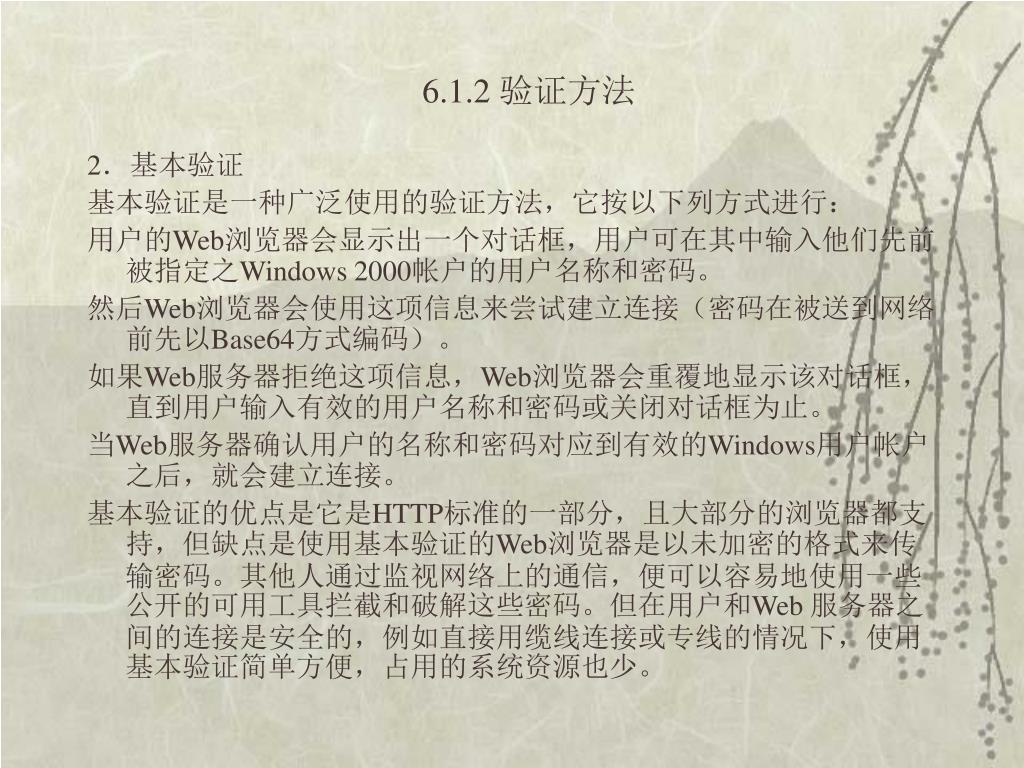 6.1.2 验证方法
2．基本验证
基本验证是一种广泛使用的验证方法，它按以下列方式进行：
用户的Web浏览器会显示出一个对话框，用户可在其中输入他们先前
被指定之Windows 2000帐户的用户名称和密码。
然后Web浏览器会使用这项信息来尝试建立连接（密码在被送到网络
前先以Base64方式编码）。
如果Web服务器拒绝这项信息，Web浏览器会重覆地显示该对话框，
直到用户输入有效的用户名称和密码或关闭对话框为止。
当Web服务器确认用户的名称和密码对应到有效的Windows用户帐户
之后，就会建立连接。
基本验证的优点是它是HTTP标准的一部分，且大部分的浏览器都支
持，但缺点是使用基本验证的Web浏览器是以未加密的格式来传
输密码。其他人通过监视网络上的通信，便可以容易地使用一些
公开的可用工具拦截和破解这些密码。但在用户和Web 服务器之
间的连接是安全的，例如直接用缆线连接或专线的情况下，使用
基本验证简单方便，占用的系统资源也少。